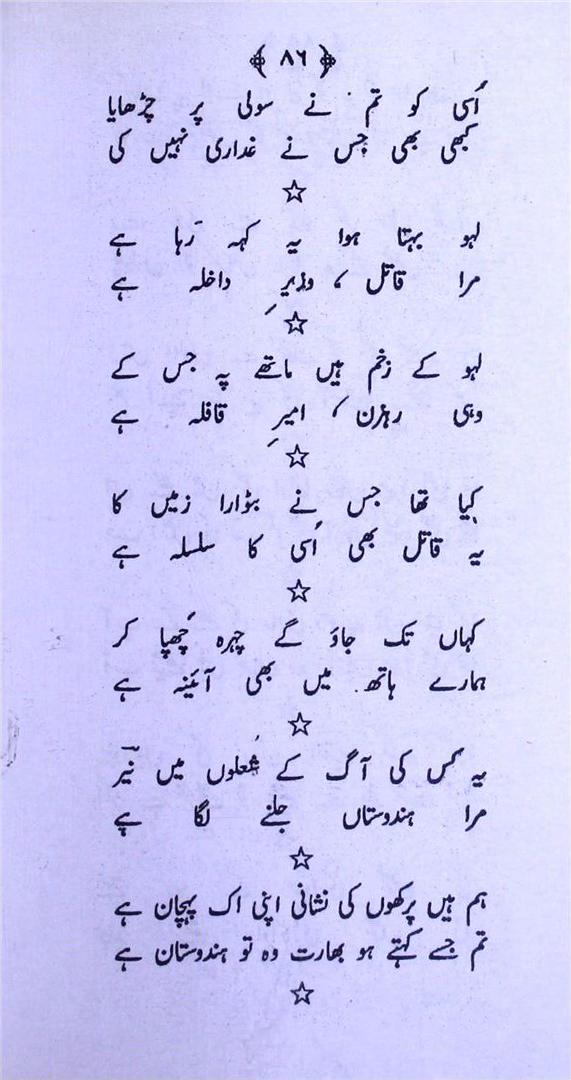 ﴿۸۶﴾
اُسی کو تم نے سولی پر چڑھایا
کبھی بھی جس نے غداری نہیں کی
☆
لہو بہتا ہوا یہ کہہ رہا ہے
مرا قاتل، وزیرِ داخلہ ہے
☆
لہو کے زخم ہیں ماتھے پہ جس کے
وہی رہزن، امیرِ قافلہ ہے
☆
کیا تھا جس نے بٹوارا زمیں کا
یہ قاتل بھی اُسی کا سلسلہ ہے
☆
کہاں تک جاؤ گے چہرہ چھپا کر
ہمارے ہاتھ میں بھی آئینہ ہے
☆
یہ کس کی آگ کے شعلوں میں نیّر
مرا ہندوستاں جلنے لگا ہے
☆
ہم ہیں پرکھوں کی نشانی اپنی اک پہچان ہے
تم جسے کہتے ہو بھارت وہ تو ہندوستان ہے
☆